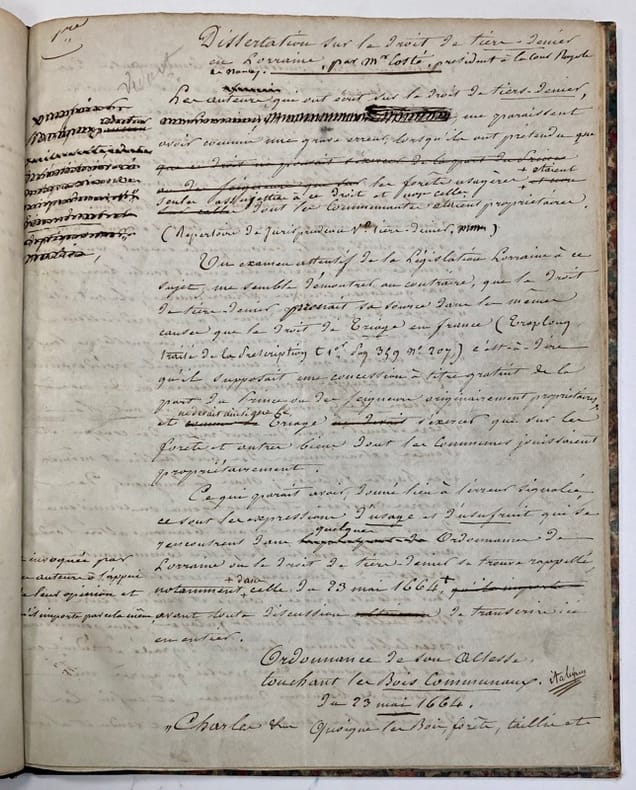 1re
Dissertation sur le Droit de tiers-denier
en Lorraine, par Mr Costé, président à la Cour Royale
de Nancy.
Les auteurs qui ont écrit sur le droit de tiers-denier,
me paraissent
avoir commis une grave erreur, lorsqu'ils ont prétendu que
que ce droit ne pouvait s'exercer de la part du Prince
ou du Seigneur que sur les forêts usagères + étaient
seules assujetties à ce droit et non celles
dont les Communautés étaient propriétaires.
(Répertoire de jurisprudence Vo tiers-denier,
Un examen attentif de la Législation Lorraine à ce
sujet, me semble démontrer au contraire, que le droit
de tiers-denier prenait sa source dans les mêmes
causes que le droit de Triage en france (Troplong
traité de la Prescription t 1er pag 349 no 207) c'est-à-dire
qu'il supposait une concession à titre gratuit de la
part du Prince ou des Seigneurs originairement propriétaires,
et ne devait ainsi que le Triage s'exercer que sur les
forêts et autres biens dont les Communes jouissaient
propriétairement.
Ce qui parait avoir donné lieu à l'erreur signalée,
ce sont les expressions d'usage et d'usufruit qui se
rencontrent dans quelques Ordonnances de
Lorraine où le droit de tiers-denier se trouve rappellé,
notamment, + dans celle du 23 mai 1664, +
invoquée par
auteurs à l'appui
leur opinion et
qu'il importe par cela même
avant toute discussion de transcrire ici
en entier.
Ordonnance de son Altesse
touchant les Bois Communaux.
du 23 mai 1664.
italique
"Charles &a Quoique les Bois, forêts, taillis et